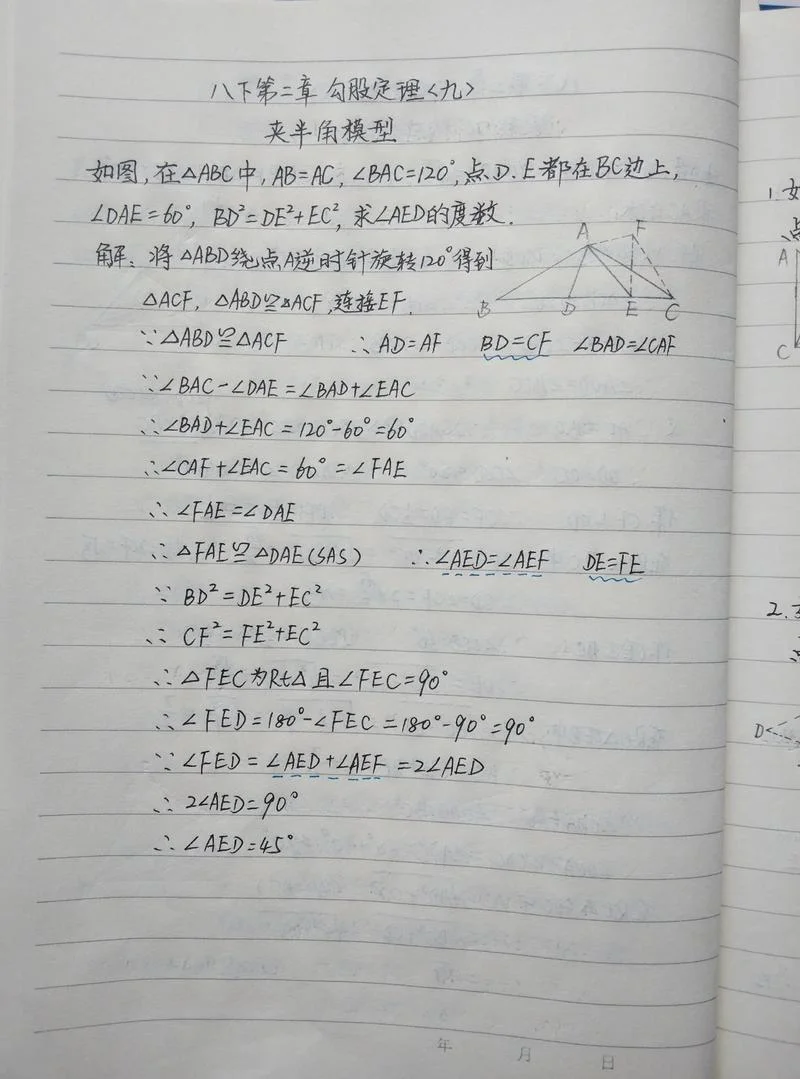 八下第二章 勾股定理<九>
夹半角模型
如图,在△ABC中,AB=AC,∠BAC=120°,点D.E都在BC边上,
∠DAE=60°, BD²=DE²+EC²,求∠AED的度数.
解:将△ABD绕点A逆时针旋转120°得到
△ACF, △ABD≌△ACF,连接EF.
A F
B D E C
∵△ABD≌△ACF ∴AD=AF BD=CF ∠BAD=∠CAF
∵∠BAC-∠DAE=∠BAD+∠EAC
∴∠BAD+∠EAC=120°-60°=60°
∴∠CAF+∠EAC=60°=∠FAE
∴∠FAE=∠DAE
∴△FAE≌△DAE(SAS) ∴∠AED=∠AEF DE=FE
∵ BD²=DE²+EC²
∴ CF²=FE²+EC²
∴△FEC为Rt△且∠FEC=90°
∴∠FED=180°-∠FEC=180°-90°=90°
∵∠FED=∠AED+∠AEF=2∠AED
∴ 2∠AED=90°
∴ ∠AED=45°
年 月 日
1.如
点
A
C
2.
D